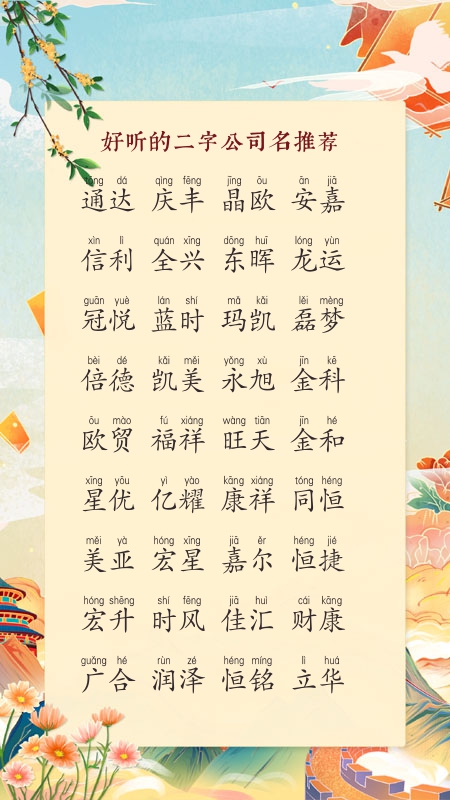 好听的二字公司名推荐
tōng dá qìng fēng jīng ōu ān jiā
通达 庆丰 晶欧 安嘉
xìn lì quán xīng dōng huī lóng yùn
信利 全兴 东晖 龙运
guān yuè lán shí mǎ kǎi lěi mèng
冠悦 蓝时 玛凯 磊梦
bèi dé kǎi měi yǒng xù jīn kē
倍德 凯美 永旭 金科
ōu mào fú xiáng wàng tiān jīn hé
欧贸 福祥 旺天 金和
xīng yōu yì yào kāng xiáng tóng héng
星优 亿耀 康祥 同恒
měi yà hóng xīng jiā ěr héng jié
美亚 宏星 嘉尔 恒捷
hóng shēng shí fēng jiā huì cái kāng
宏升 时风 佳汇 财康
guǎng hé rùn zé héng míng lì huá
广合 润泽 恒铭 立华